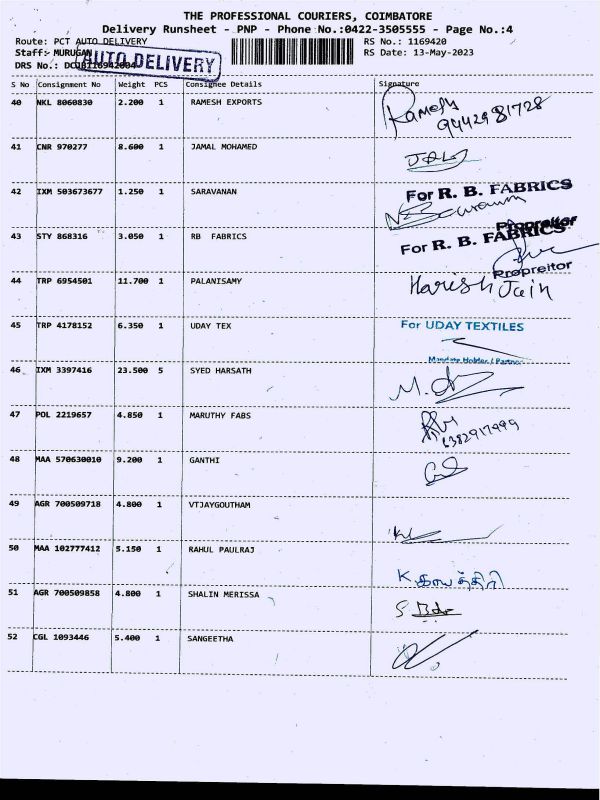 THE PROFESSIONAL COURIERS, COIMBATORE
Delivery Runsheet - PNP - Phone No.:0422-3505555 - Page No.:4
Route: PCT AUTO DELIVERY RS No.: 1169420
Staff:- MURUGAN RS Date: 13-May-2023
AUTO DELIVERY
DRS No.:
S No Consignment No Weight PCS Consignee Details Signature
40 NKL 8060830 2.200 1 RAMESH EXPORTS Ramesh
9442981728
41 CNR 970277 8.600 1 JAMAL MOHAMED
42 IXM 503673677 1.250 1 SARAVANAN For R. B. FABRICS
Propreitor
43 STY 868316 3.050 1 RB FABRICS For R. B. FABRICS
Propreitor
44 TRP 6954501 11.700 1 PALANISAMY Harish Jain
45 TRP 4178152 6.350 1 UDAY TEX For UDAY TEXTILES
Mandate Holder / Partner
46 IXM 3397416 23.500 5 SYED HARSATH
47 POL 2219657 4.850 1 MARUTHY FABS
6382917999
48 MAA 570630010 9.200 1 GANTHI
49 AGR 700509718 4.800 1 VTJAYGOUTHAM
50 MAA 102777412 5.150 1 RAHUL PAULRAJ
51 AGR 700509858 4.800 1 SHALIN MERISSA
52 CGL 1093446 5.400 1 SANGEETHA